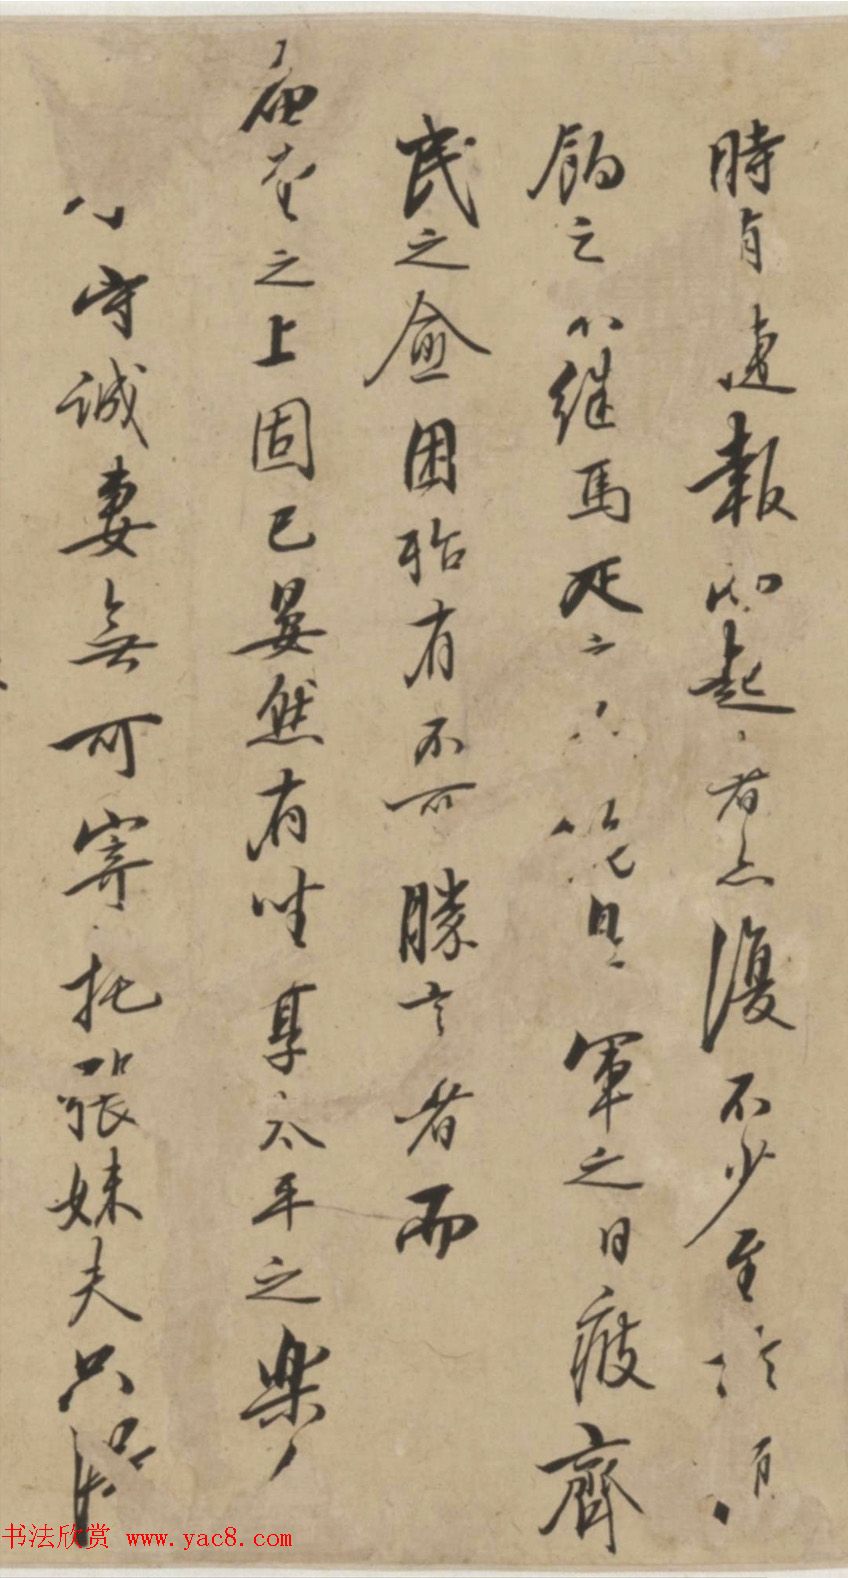 時有邊報 起者 復不少至
餉之不繼馬死之 軍之日疲齊
民之愈困殆有不可勝言者而
廟堂之上固已晏然有坐享太平之樂
守誠妻無可寄托張妹夫只
书法欣赏 www.yac8.com